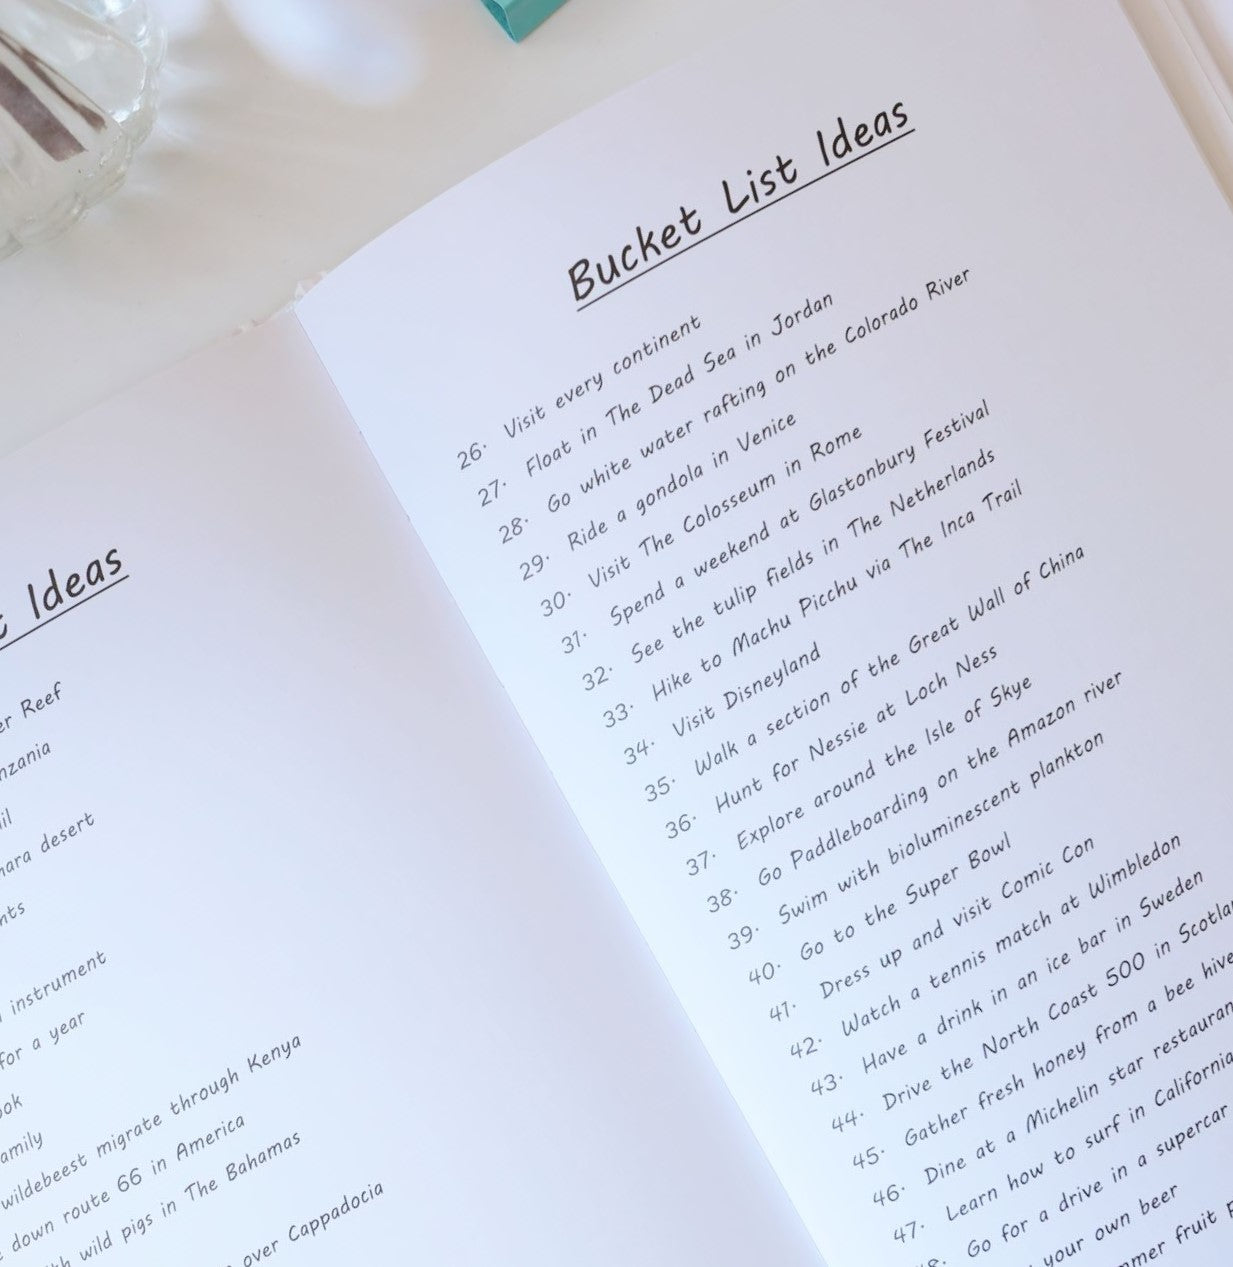 Ideas
Reef
desert
instrument
for a year
wildebeest migrate through Kenya
down route 66 in America
wild pigs in The Bahamas
over Cappadocia
Bucket List Ideas
26. Visit every continent
27. Float in The Dead Sea in Jordan
28. Go white water rafting on the Colorado River
29. Ride a gondola in Venice
30. Visit The Colosseum in Rome
31. Spend a weekend at Glastonbury Festival
32. See the tulip fields in The Netherlands
33. Hike to Machu Picchu via The Inca Trail
34. Visit Disneyland
35. Walk a section of the Great Wall of China
36. Hunt for Nessie at Loch Ness
37. Explore around the Isle of Skye
38. Go Paddleboarding on the Amazon river
39. Swim with bioluminescent plankton
40. Go to the Super Bowl
41. Dress up and visit Comic Con
42. Watch a tennis match at Wimbledon
43. Have a drink in an ice bar in Sweden
44. Drive the North Coast 500 in
45. Gather fresh honey from a bee hive
46. Dine at a Michelin star
47. Learn how to surf in California
Go for a drive in a supercar
your own beer
fruit